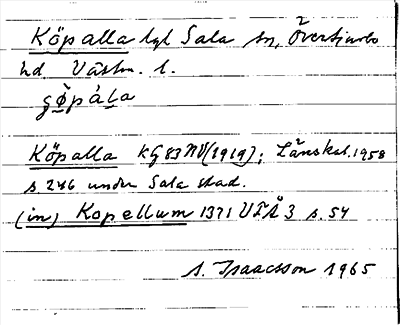 Köpalla lgl Sala sn, Övertjurbo
hd Västm. l.
gö̀pála
Köpalla KG 83 NV (1919); Länskal. 1958
s. 246 under Sala stad.
(in) Kopellum 1371 UFÅ 3 s. 54
S. Isaacsson 1965